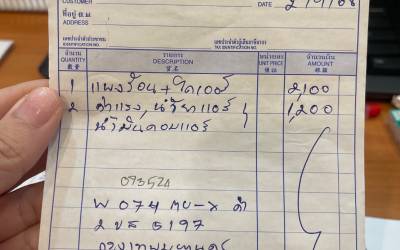 CUSTOMER
DATE 2/9/68
ที่อยู่
ADDRESS
เลขประจำตัวประชาชน เลขประจำตัวผู้เสียภาษีอากร
IDENTIFICATION NO. TAX IDENTIFICATION NO.
จำนวน รายการ หน่วยละ จำนวนเงิน
QUANTITY DESCRIPTION UNIT PRICE AMOUNT
1 แผงร้อน + ไดเออร์ 2,100
2 ค่าแรง, น้ำยาแอร์ 1,200
น้ำมันคอมแอร์
093520
074 MU-X ดำ
2 5197
กรุงเทพมหานคร